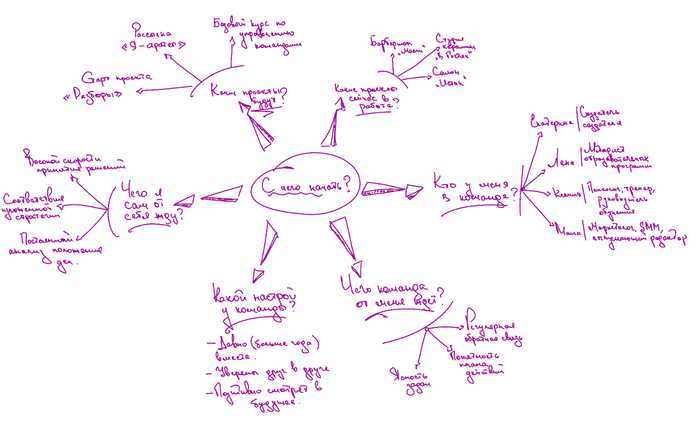 С чего начать?
Какие проекты
будут?
Рассылка
Базовый курс по
управлению
командами
Старт проекта
«Разборы»
Какие проекты
сейчас в
работе?
Барбершоп
Студия
керамики
Салон
Кто у меня
в команде?
Екатерина
Создатель
создателя
Лена
Методист
образовательных
программ
Ксения
тренер,
руководитель
обучения
Маша
Маркетолог, SMM,
редактор
Чего команда
от меня ждёт?
Регулярная
обратная связь
Понятность
плана
действий
Ясность
задач
Какой настрой
у команды?
– Давно (больше года)
вместе.
– Уверены друг в друге
– Позитивно смотрят в
будущее.
Чего я
сам от
себя жду?
Высокой скорости
принятие решений
Соответствия
стратегии
анализу положение
дел.